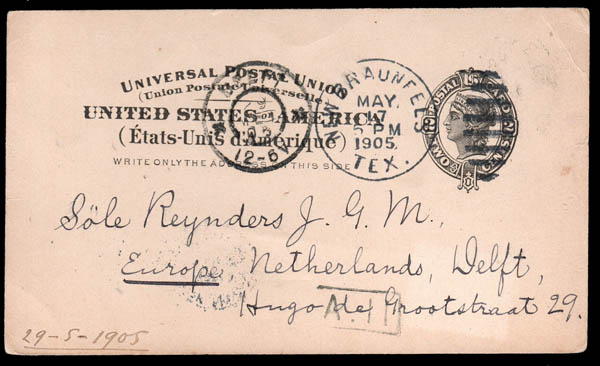 UNIVERSAL POSTAL UNION
(Union Postale Universelle)
UNITED STATES OF AMERICA
(États-Unis d'Amérique)
WRITE ONLY THE ADDRESS ON THIS SIDE
DELFT
12-6V
NEW BRAUNFELS
MAY.
17
6 PM
1905.
TEX.
POSTAL CARD
TWO CENTS
Söle Reynders J. G. M.,
Europe Netherlands, Delft,
Hugo de Grootstraat 29.
29-5-1905